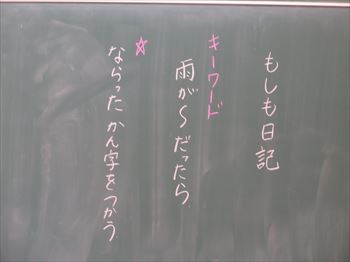 もしも日記
キーワード
雨が～だったら
☆
ならったかん字をつかう